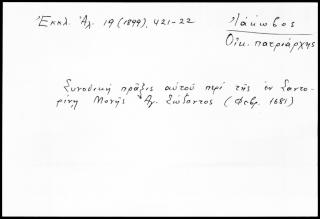 Ἐκκλ. Ἀλ. 19 (1899), 421-22
Ἰάκωβος
Οἰκ. πατριάρχης
Συνοδικὴ πρᾶξις αὐτοῦ περὶ τῆς ἐν Σαντο-
ρίνῃ Μονῆς Ἁγ. Σώζοντος (Φεβρ. 1681)